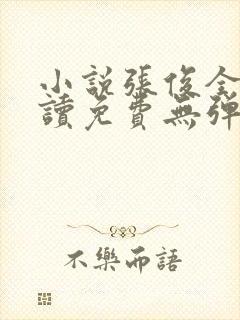 小說張俊全
讀免費無彈
不樂而語